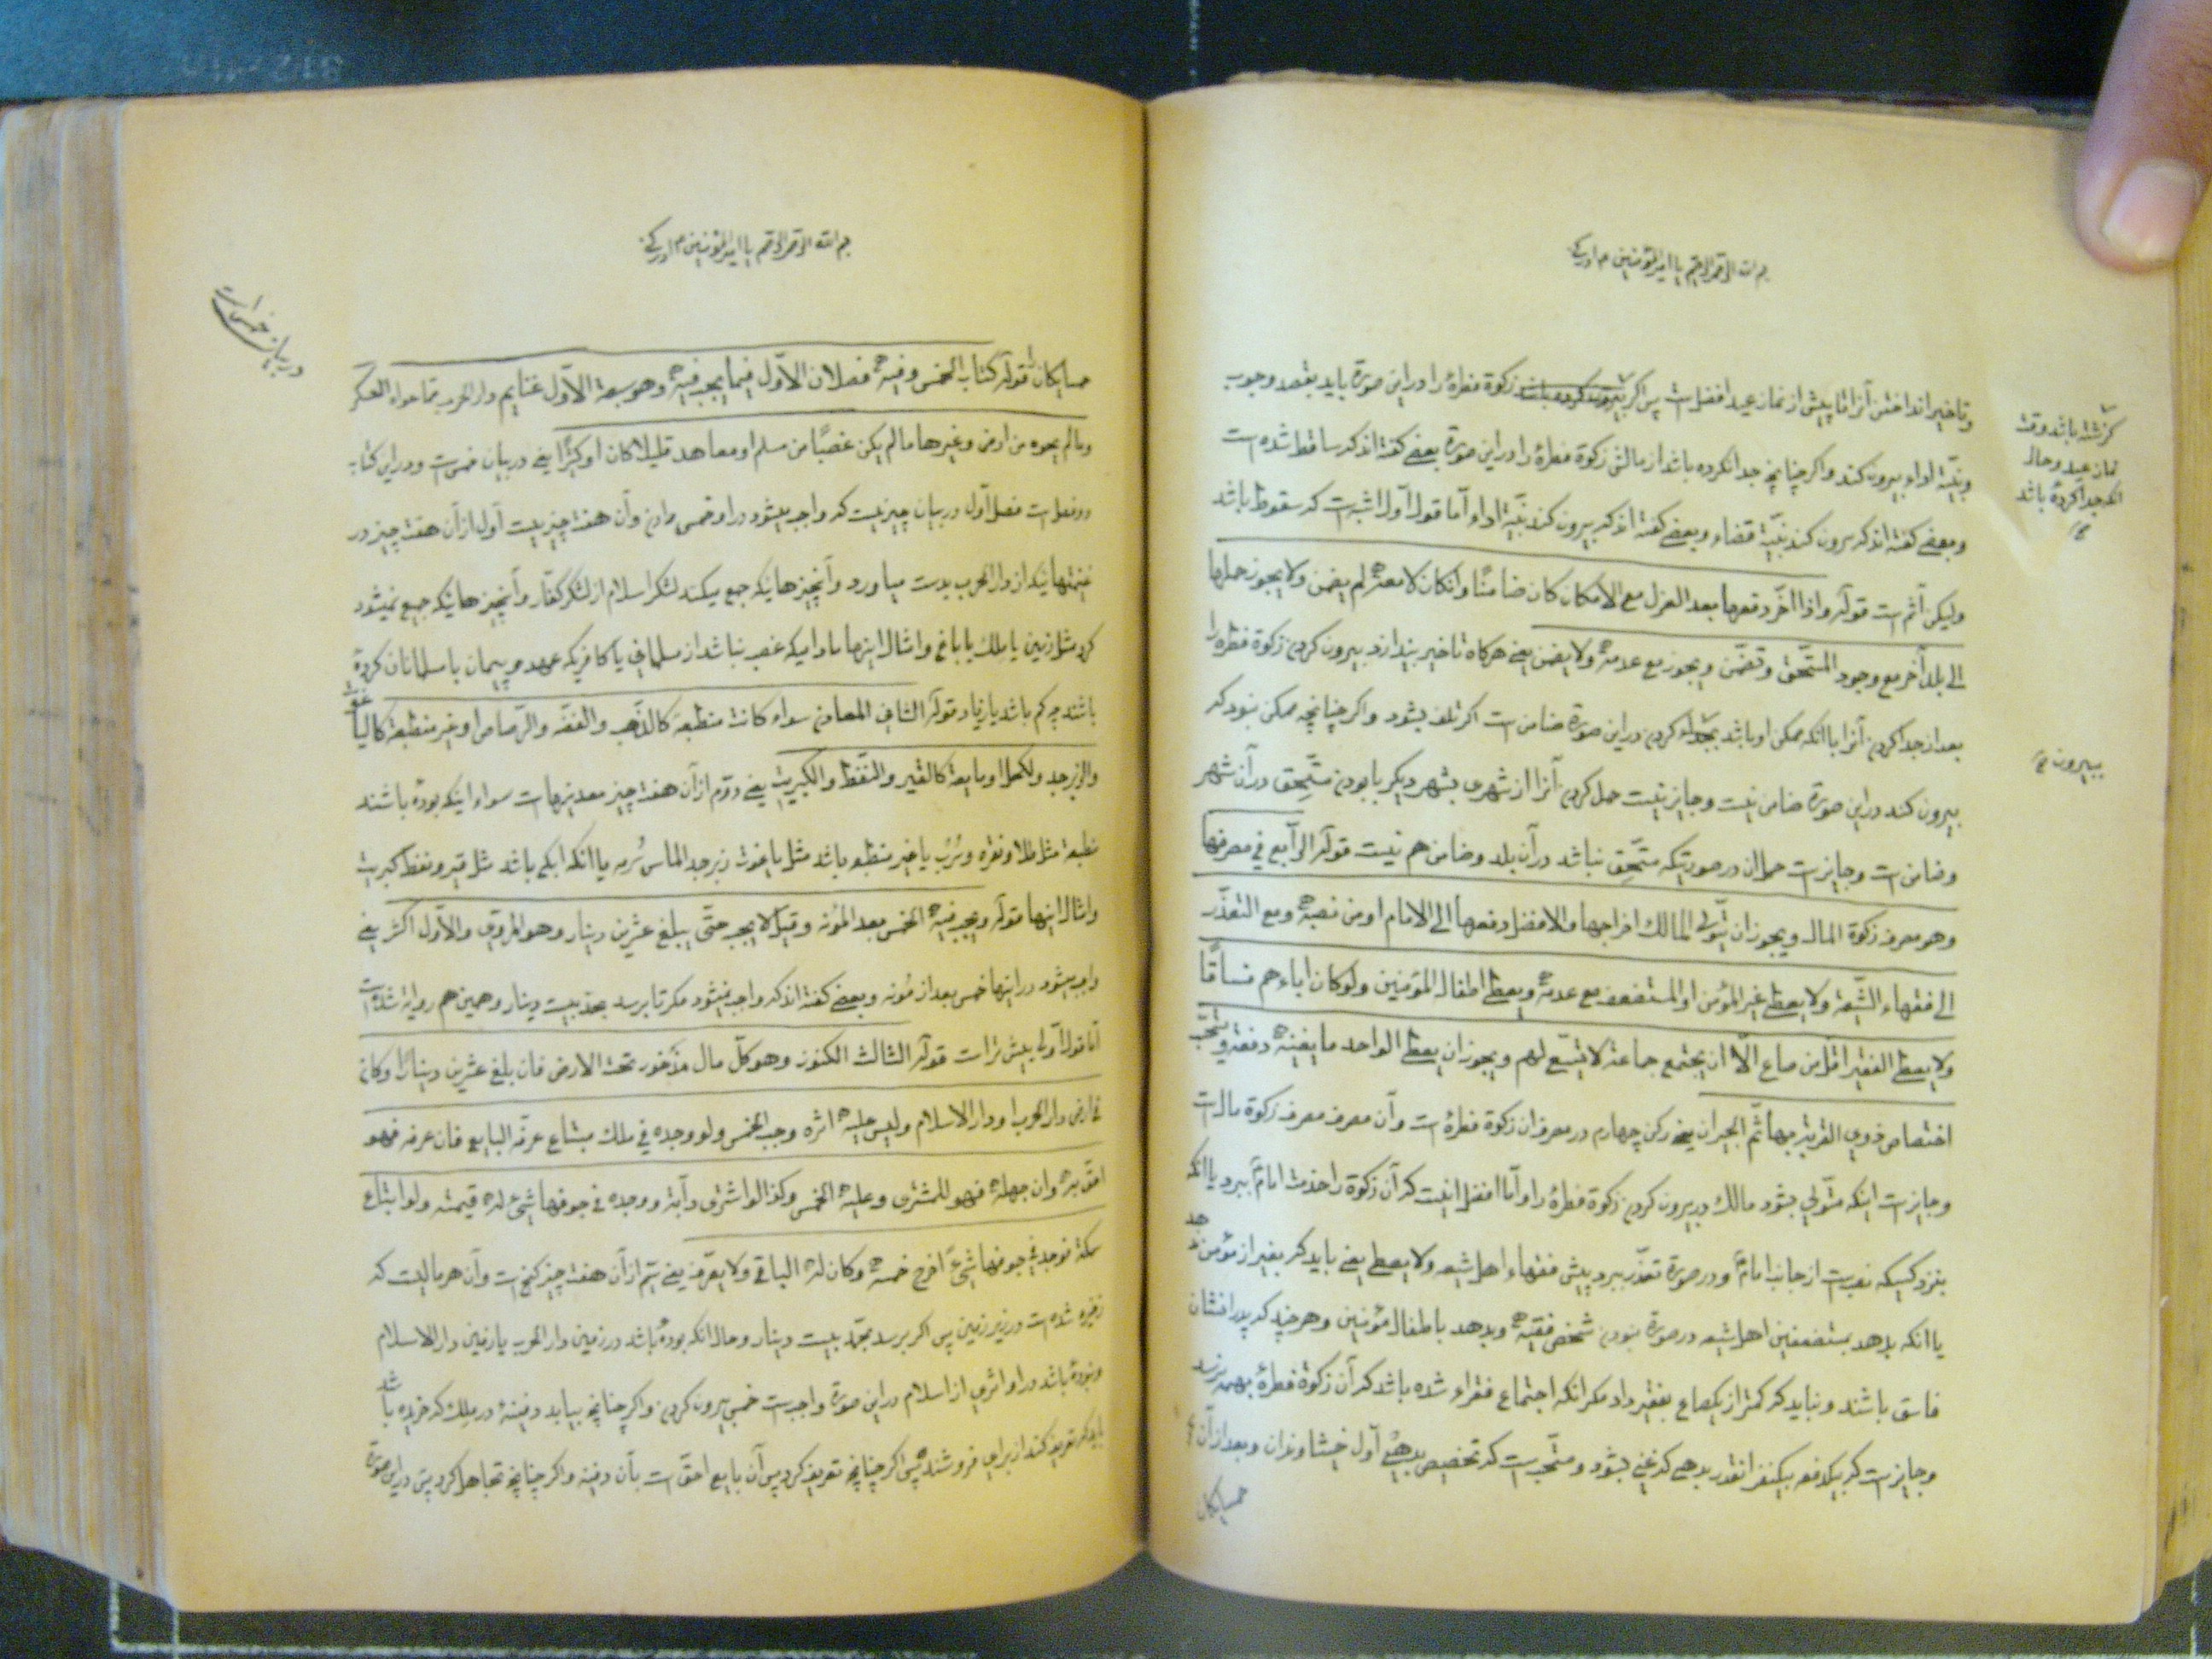 بسم الله الرحمن الرحیم یا امیر المؤمنین ادرکنی
و تاخیر انداختن آنرا تا پیش از نماز عید افضلست پس اگر بیرون کرده باشد زکوة فطرهٔ را در این صورة باید بقصد وجوب
و بنیّة اداء بیرون کند و اکر چنانچه جدا نکرده باشد از مالش زکوة فطرهٔ را در این صورة بعضی کفته اند که ساقط شده است
و بعضی کفته اند که بیرون کند بنیّة قضاء و بعضی کفته اند که بیرون کند بنیّة اداء امّا قول اوّل اشبه است که سقوط باشد
ولیکن آثم است قوله و اذا اخّر دفعها بعد العزل مع الامکان کان ضامنًا و انکان لا معه لم یضمن ولا یجوز حملها
الی بلد آخر مع وجود المستحّق و تضمّن و یجوز مع عدمه ولا یضمن یعنی هرکاه تاخیر بیندازد بیرون کردن زکوة فطره را
بعد از جدا کردن آنرا با انکه ممکن او باشد جداء کردن در این صورة ضامن است اکر تلف بشود و اکر چنانچه ممکن نبود که
بیرون کند در این صورة ضامن نیست و جایز نیست حمل کردن آنرا از شهری بشهر دیکر با بودن مستّحق در آن شهر
و ضامن است و جایز است حمل ان در صورتیکه مستّحق نباشد در آن بلد و ضامن هم نیست قوله الرّابع فی مصرفها
و هو مصرف زکوة المال و یجوز ان یتولّی المالک اخراجها و الافضل دفعها الی الامام او من نصبه و مع التعذّر
الی فقهاء الشّیعة ولا یعطی غیر المؤمن او المستضعف مع عدمه و یعطی اطفال المؤمنین ولو کان اباءهم فساقًا
ولا یعطی الفقیر اقلّ من صاع الّا ان یجتمع جماعة لا تتّسع لهم و یجوز ان یعطی الواحد ما یغنیه دفعة و یستحّب
اختصاص ذوی القرابة بها ثمّ الجیران یعنی رکن چهارم در مصرف ان زکوة فطرهٔ است و آن مصرف مصرف زکوة مال است
و جایز است اینکه متولّی بشود مالک در بیرون کردن زکوة فطرهٔ را و امّا افضل اینست که آن زکوة را خدمت امام ببرد یا انکه
بنزد کسیکه نصبست از جانب امام و در صورة تعذّر ببرد پیش فقهاء اهل شیعه ولا یعطی یعنی باید که بغیر از مؤمن
یا انکه بدهد بمستضعفین اهل شیعه در صورة نبودن شخص فقیه و بدهد باطفال مؤمنین و هر چند که پدرانشان
فاسق باشند و نباید که کمتر از یکصاع بفقیر داد مکر انکه اجتماع فقراء شده باشد که آن زکوة فطرهٔ بهمه نرسد
و جایز است که بیکدفعه بیکنفر انقدر بدهی که غنی بشود و مستّحب است که تخصیص بدهی اوّل خیشاوندان و بعد از آن
همسایکان
کرشته باشد وقت
نماز عید و حال
انکه جدا کردهٔ باشد
بیرون
بسم الله الرحمن الرحیم یا امیر المؤمنین ادرکنی
در بیان خمس است
همسایکان قوله کتاب الخمس و فیه فصلان الاوّل فیما یجب فیه و هو سبعة الاوّل غنایم دار الحرب ممّا حواه العسکر
و مالم یحوه من ارض و غیرها مالم یکن غصبًا من مسلم او معاهد قلیلا کان او کثیرًا یعنی در بیان خمس است و در این کتاب
دو فصل است فصل اوّل در بیان چیزیست که واجب میشود در او خمس دادن و آن هفت چیزیست اوّل از آن هفت چیز در
غنیمتهائیکه از دار الحرب بدست میاورد و آنچیزهائیکه جمع میکند لشکر اسلام از لشکر کفّار و آنچیزهائیکه جمع نمیشود
کرد مثل زمین یا ملک یا باغ و امثال اینها مادامیکه غصب نباشد از مسلمانی یا کافریکه عهد و پیمان با مسلمانان کردهٔ
باشند چه کم باشد یا زیاد قوله الثانی المعادن سواء کانت منطبعة کالذّهب و الفضّة و الرّصاص او غیر منطبعة کالیاقوت
و الزبرجد و الکحل او مایعة کالقیر و النّفط و الکبریت یعنی دوّم از آن هفت چیز معدنیهاست سواء اینکه بودهٔ باشند
منطبعة مثل طلا و نقره و سُرُب یا غیر منطبع باشد مثل یاقوت زبرجد الماس سُرمه یا انکه ابکی باشد مثل قیر و نفط کبریت
و امثال اینها قوله و یجب فیه الخمس بعد المؤنة و قیل لا یجب حتّی یبلغ عشرین دینار و هو المروی و الاوّل اکثر یعنی
واجب میشود در اینها خمس بعد از مؤنه و بعضی کفته اند که واجب نمیشود مکر تا برسد بحد بیست دینار و همین هم روایة شده است
امّا قول اوّلی بیش تر است قوله الثالث الکنوز و هو کلّ مال مذخور تحت الارض فان بلغ عشرین دینارًا و کان
فی ارض دار الحرب او دار الاسلام و لیس علیه اثره وجب الخمس ولو وجده فی ملک مبتاع عرفّه البایع فان عرفه فهو
احقّ به و ان جهله فهو للمشتری و علیه الخمس و کذا لو اشتری دآبة و وجده فی جوفها شیء له قیمته ولو ابتاع
سمکة فوجد فی جوفها شیءً اخرج خمسه و کان له الباقی ولا یعرّف یعنی سیّم از آن هفت چیز کنج است و آن هر مالیست که
ذخیره شده است در زیر زمین پس اکر برسد بحدّ بیست دینار و حال انکه بودهٔ باشد در زمین دار الحرب یا زمین دار الاسلام
و نبودهٔ باشد در او اثری از اسلام در این صورة واجب است خمس بیرون کردن و اکر چنانچه بیابد دفینهٔ در ملک که خریده باشد
باید که تعریف کند از برای فروشنده پس اکر چنانچه تعریف کرد پس آن بایع احقّ است بآن دفینه و اکر چنانچه تجاهل کرد پس در این صورة